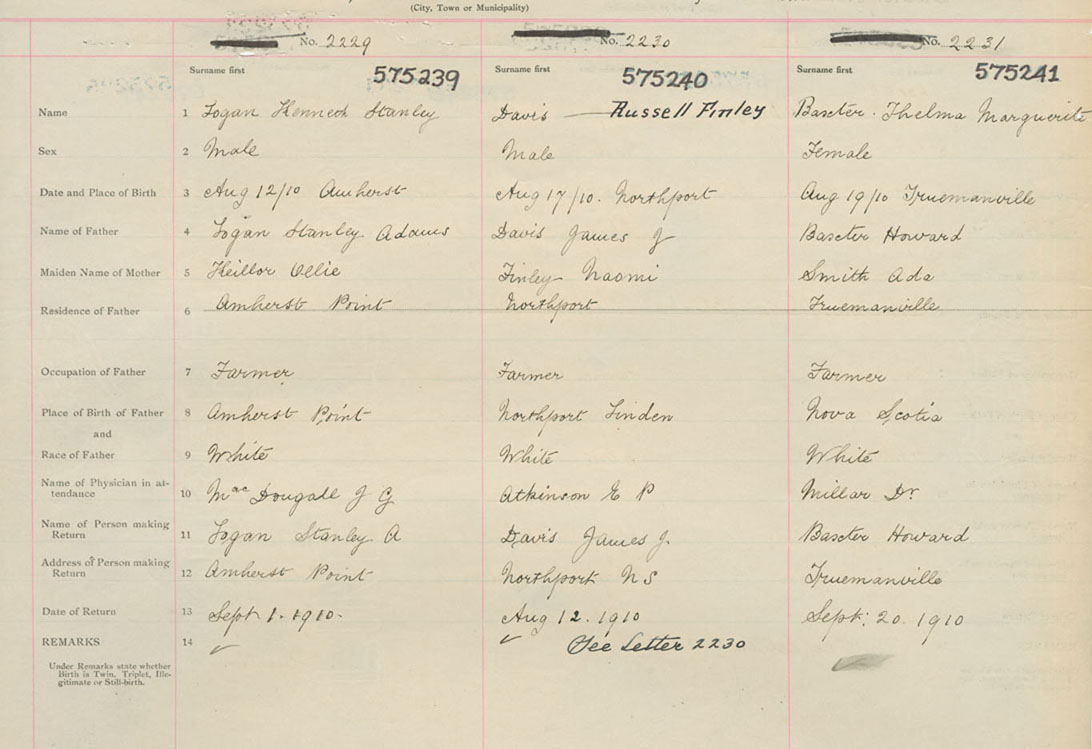 (City, Town or Municipality)
No. 2229 No. 2230 No. 2231
Surname first 575239 Surname first 575240 Surname first 575241
Name 1 Logan Kenneth Stanley Davis — Russell Finley Baxter. Thelma Marguerite
Sex 2 Male Male Female
Date and Place of Birth 3 Aug 12/10 Amherst Aug 17/10. Northport Aug 19/10 Truemanville
Name of Father 4 Logan Stanley Adams Davis James J Baxter Howard
Maiden Name of Mother 5 Keillor Ollie Finley Naomi Smith Ada
Residence of Father 6 Amherst Point Northport Truemanville
Occupation of Father 7 Farmer Farmer Farmer
Place of Birth of Father 8 Amherst Point Northport Linden Nova Scotia
and
Race of Father 9 White White White
Name of Physician in at-
tendance 10 Mac Dougall J G Atkinson E P Millar Dr
Name of Person making
Return 11 Logan Stanley A Davis James J. Baxter Howard
Address of Person making
Return 12 Amherst Point Northport N S Truemanville
Date of Return 13 Sept. 1. 1910. Aug 12. 1910 Sept. 20. 1910
REMARKS 14 ✓ ✓ See Letter 2230
Under Remarks state whether
Birth is Twin, Triplet, Ille-
gitimate or Still-birth.